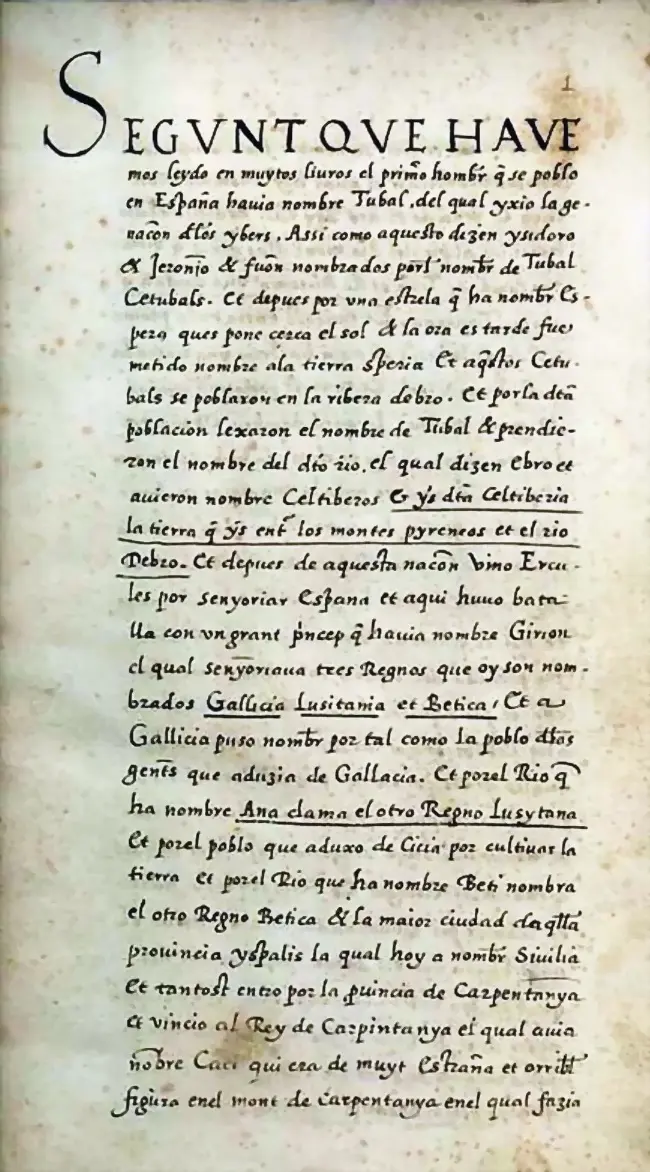 1
SEGVNT QVE HAVE
mos leydo en muytos liuros el prim̃o hombr̃ q̃ se poblo
en España hauia nombre Tubal, del qual yxio la ge-
nacõn dlos ybers. Assi como aquesto dizen ysidoro
& Jeronjo & fuõn nombrados porl nombr̃ de Tubal
Cetubals. Et depues por vna estrela q̃ ha nombr̃ Es-
pera ques pone cerca el sol & la ora es tarde fue
metido nombre ala tierra speria Et aq̃stos Cetu-
bals se poblaron en la ribera debro. Et por la dta
población lexaron el nombre de Tubal & prendie-
ron el nombre del dto rio, el qual dizen Ebro et
auieron nombre Celtiberos Et ys dta Celtiberia
la tierra q̃ ys ent̃ los montes pyreneos et el rio
Debro. Et depues de aquesta nacõn vino Ercu-
les por senyoriar España et aqui huuo bata
lla con vn grant p̃ncep q̃ hauia nombre Girion
el qual senyoriaua tres Regnos que oy son nom-
brados Gallicia Lusitania et Betica, Et a
Gallicia puso nombr̃ por tal como la poblo dlas
gent̃s que aduzia de Gallacia. Et por el Rio q̃
ha nombre Ana clama el otro Regno Lusytana
Et por el poblo que aduxo de Cicia por cultiuar la
tierra et por el Rio que ha nombre Beti nombra
el otro Regno Betica & la maior ciudad daq̃lla
prouincia yspalis la qual hoy a nombr̃ Siuilia
Et tantost entro por la puincia de Carpentanya
et vincio al Rey de Carpintanya el qual auia
nõbre Caci qui era de muyt estraña et orribl
figura en el mont de Carpentanya en el qual fazia